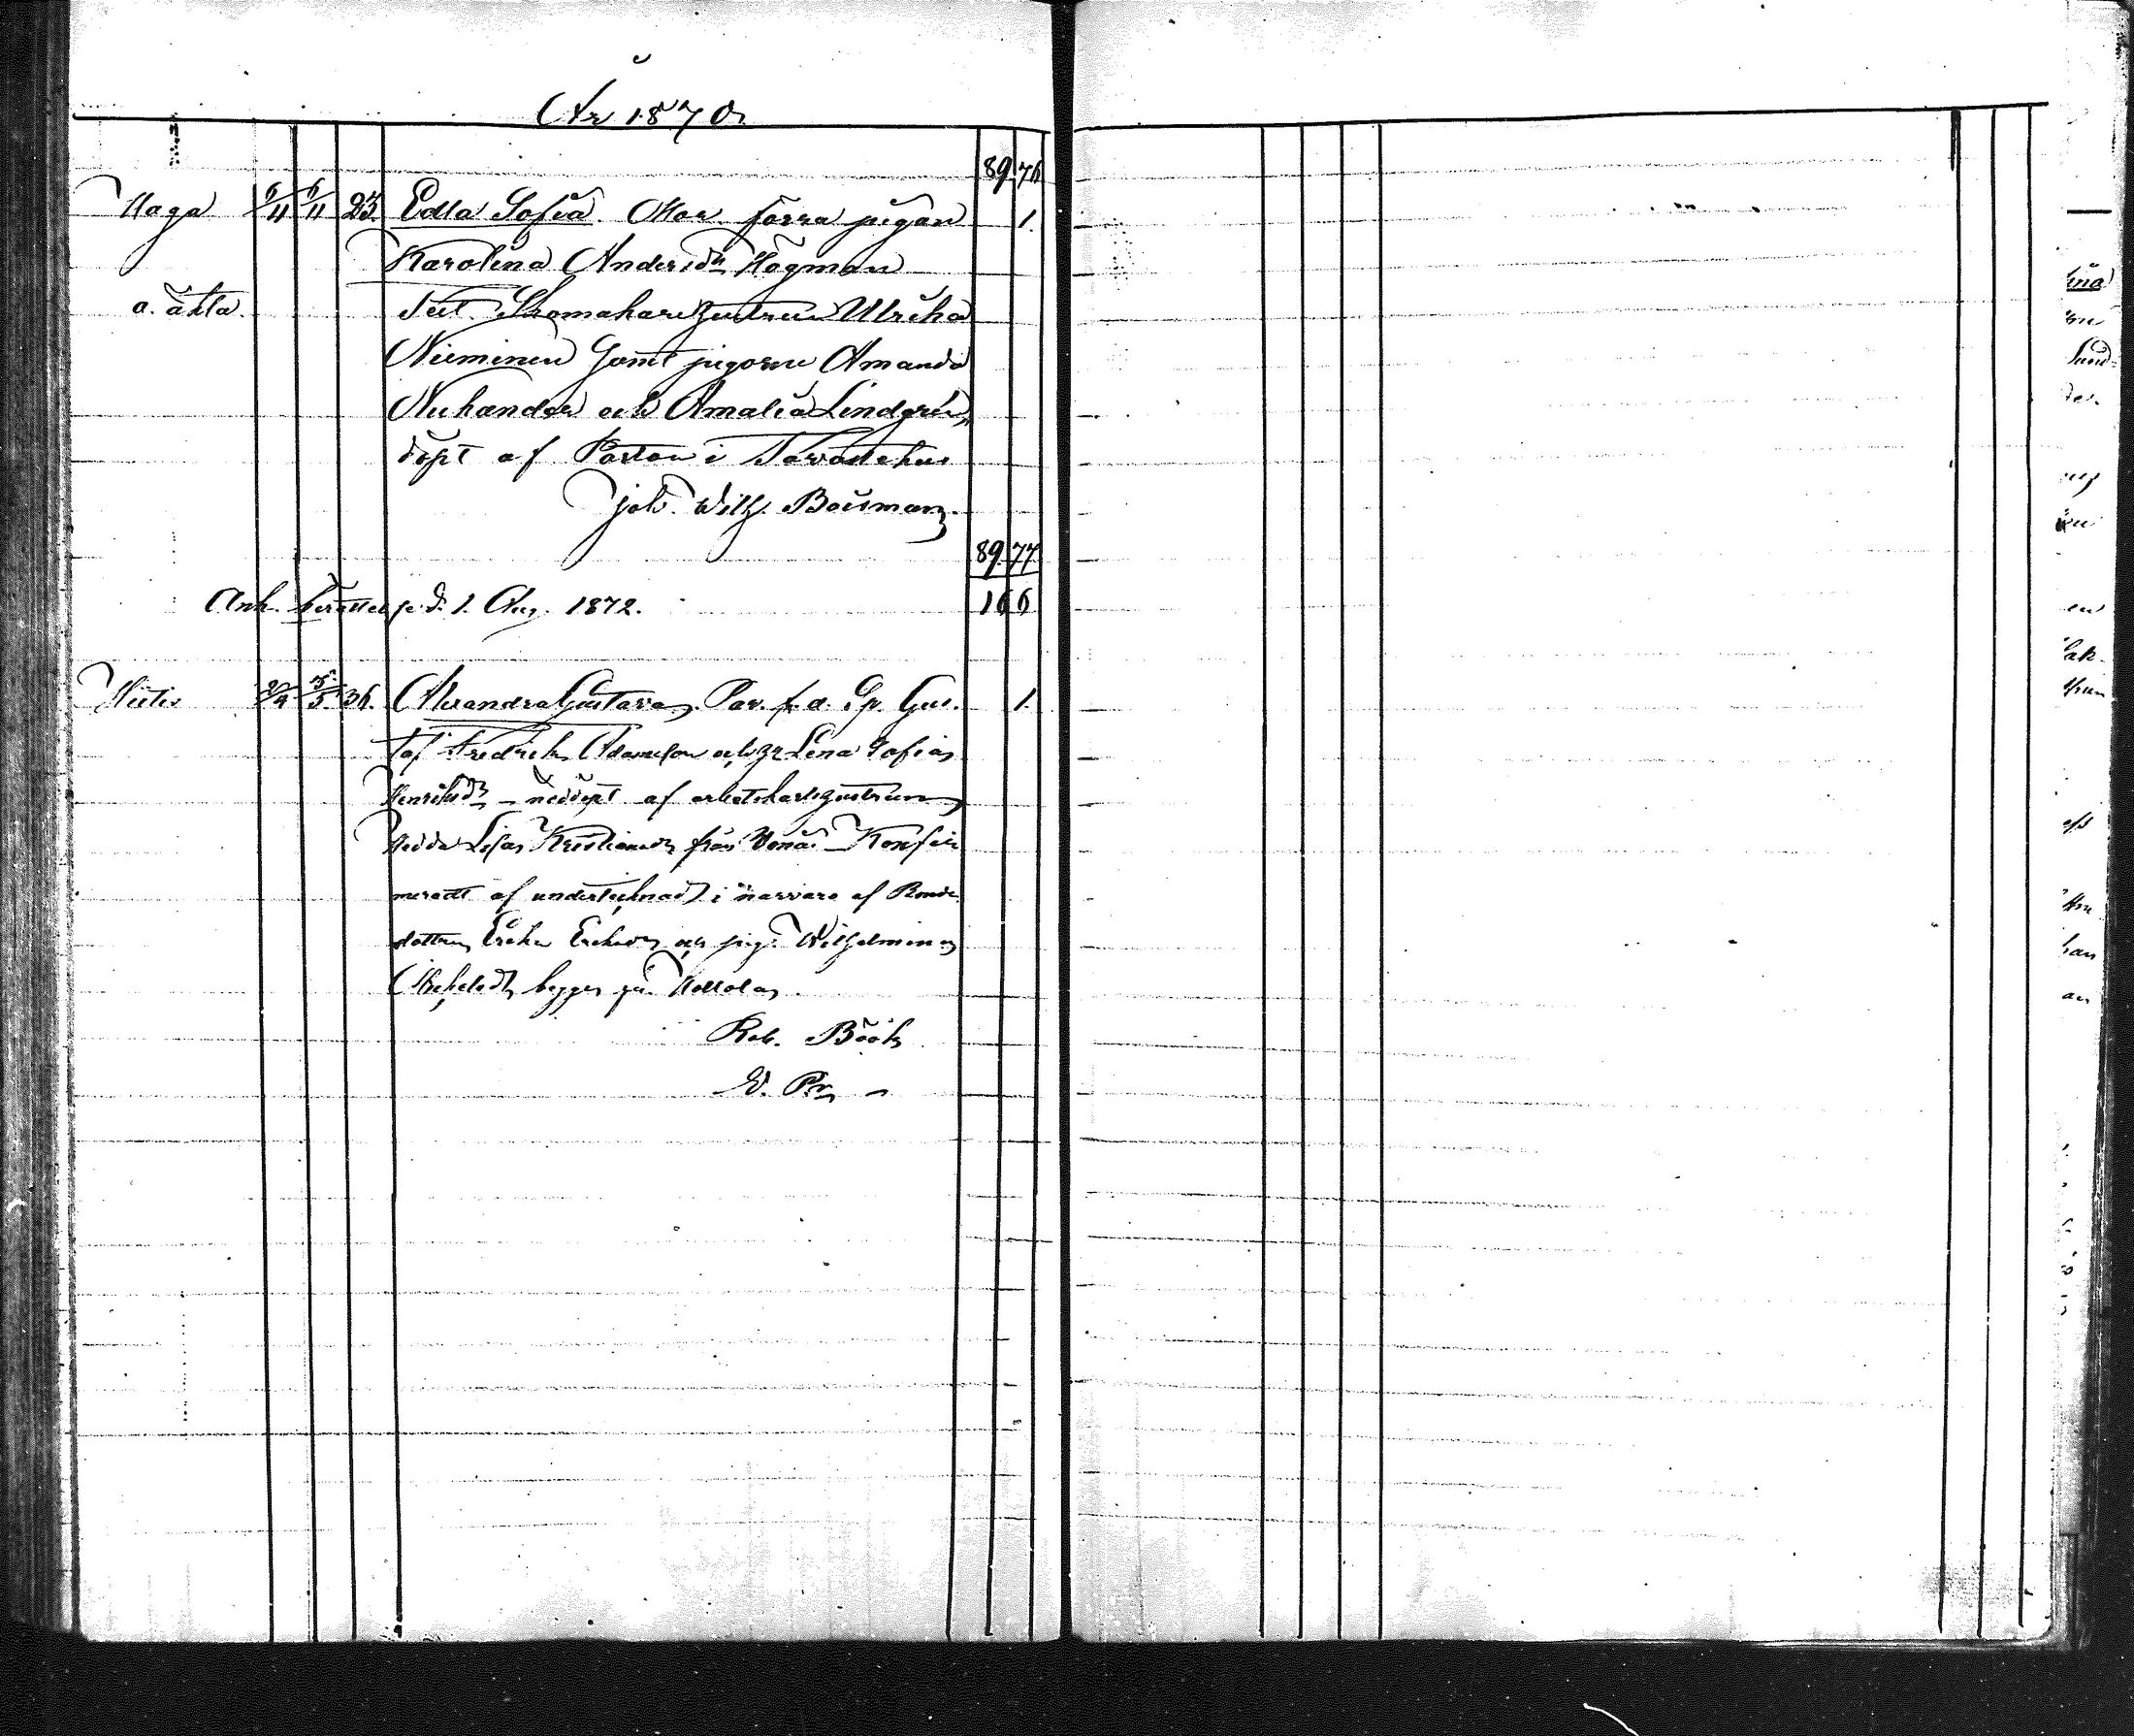 År 1870.
89 76
Haga 6/11 6/11 25. Edla Sofia. Mor. förra pigan 1.
Karolina Andersdr Högman
o. äkta. Test. Skomakarehustrun Ulrika
Nieminen samt pigorna Amanda
Nuhander och Amalia Lindgrén,
döpt af Pastorn i Tavastehus
Joh. Wilh. Boisman.
89. 77
Anh. berättelse d. 1. Aug. 1872. 166
5/5 36. Alexandra Gustava. Par. f. d. Sp. Gus-
taf Fredrik Adamsson och h Lena Sofia
Henriksdr – nöddöpt af arbetskarlshustrun
Hedda Lisa Kristiansdr från – Konfir
meradt af undertecknad i närvaro af Bonde
dottren Erika Eriksdr och pig. Wilhelmina
begge fr. Hollola.
Rob. Böök
V. Pr.